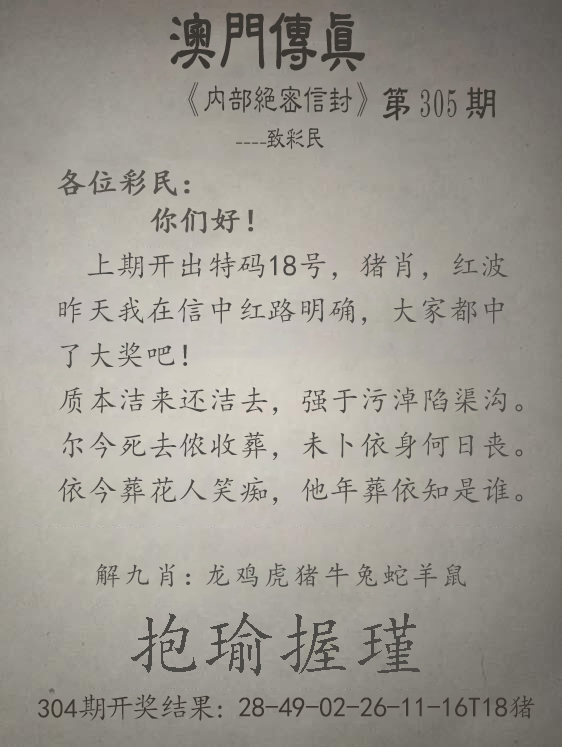 澳門傳眞
《内部絕密信封》第305期
----致彩民
各位彩民：
你们好！
上期开出特码18号，猪肖，红波
昨天我在信中红路明确，大家都中
了大奖吧！
质本洁来还洁去，强于污淖陷渠沟。
尔今死去侬收葬，未卜依身何日丧。
依今葬花人笑痴，他年葬依知是谁。
解九肖：龙鸡虎猪牛兔蛇羊鼠
抱瑜握瑾
304期开奖结果：28-49-02-26-11-16T18猪